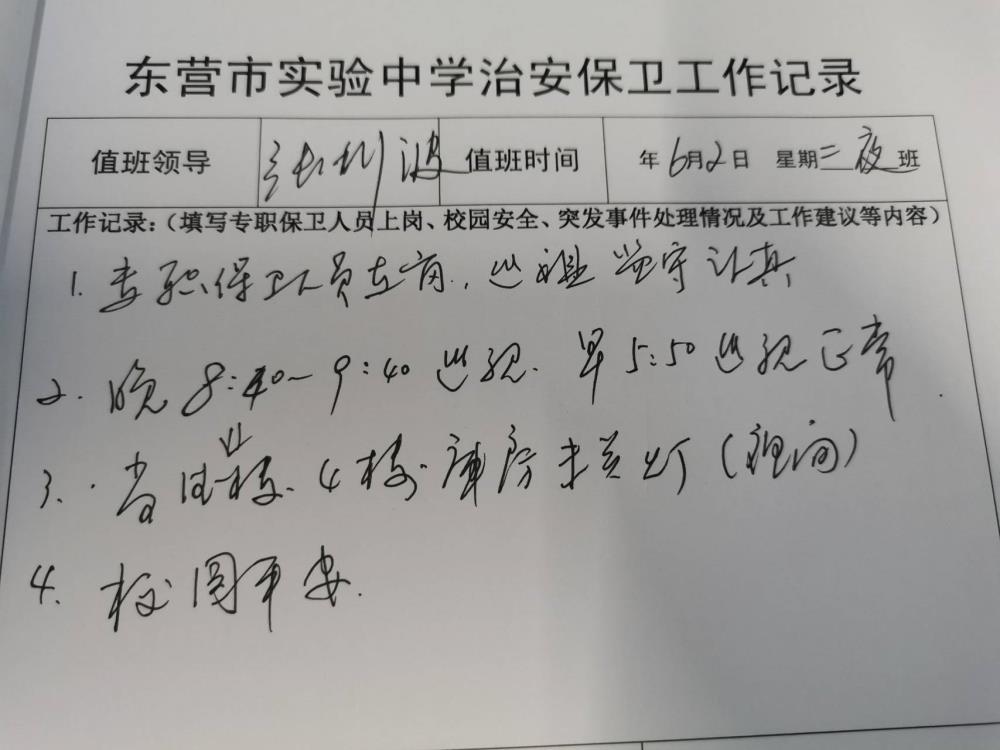 东营市实验中学治安保卫工作记录
值班领导 张 波 值班时间 年 6月2日 星期三 夜班
工作记录:(填写专职保卫人员上岗、校园安全、突发事件处理情况及工作建议等内容)
1. 专职保卫人员在岗, 巡逻 监守认真
2. 晚 8:40~9:40 巡视. 早 5:50 巡视正常
3. 楼. 4楼. 库房未关灯 (夜间)
4. 校园平安.